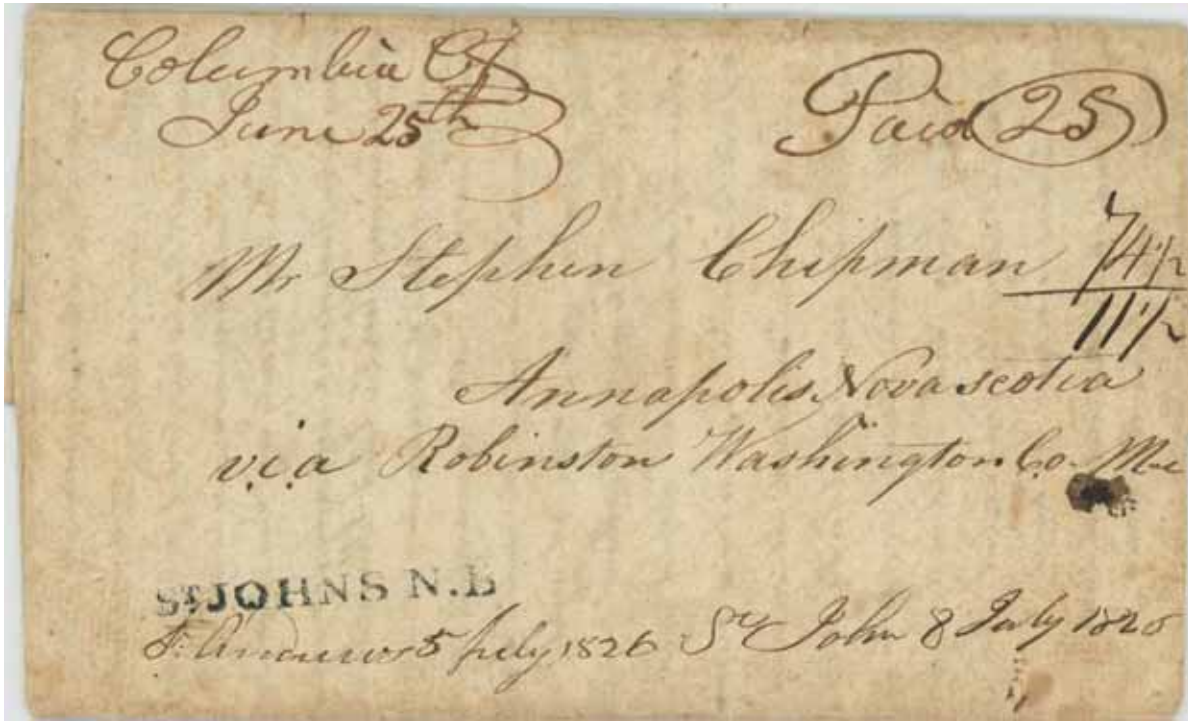 Columbia Ct
June 25th
Paid 25
Mr Stephen Chipman
7 4 1/2
11 1/2
Annapolis Nova scotia
via Robinston Washington Co. Me
ST JOHNS N.B
St. Andrews 5 July 1826 St John 8 July 1826